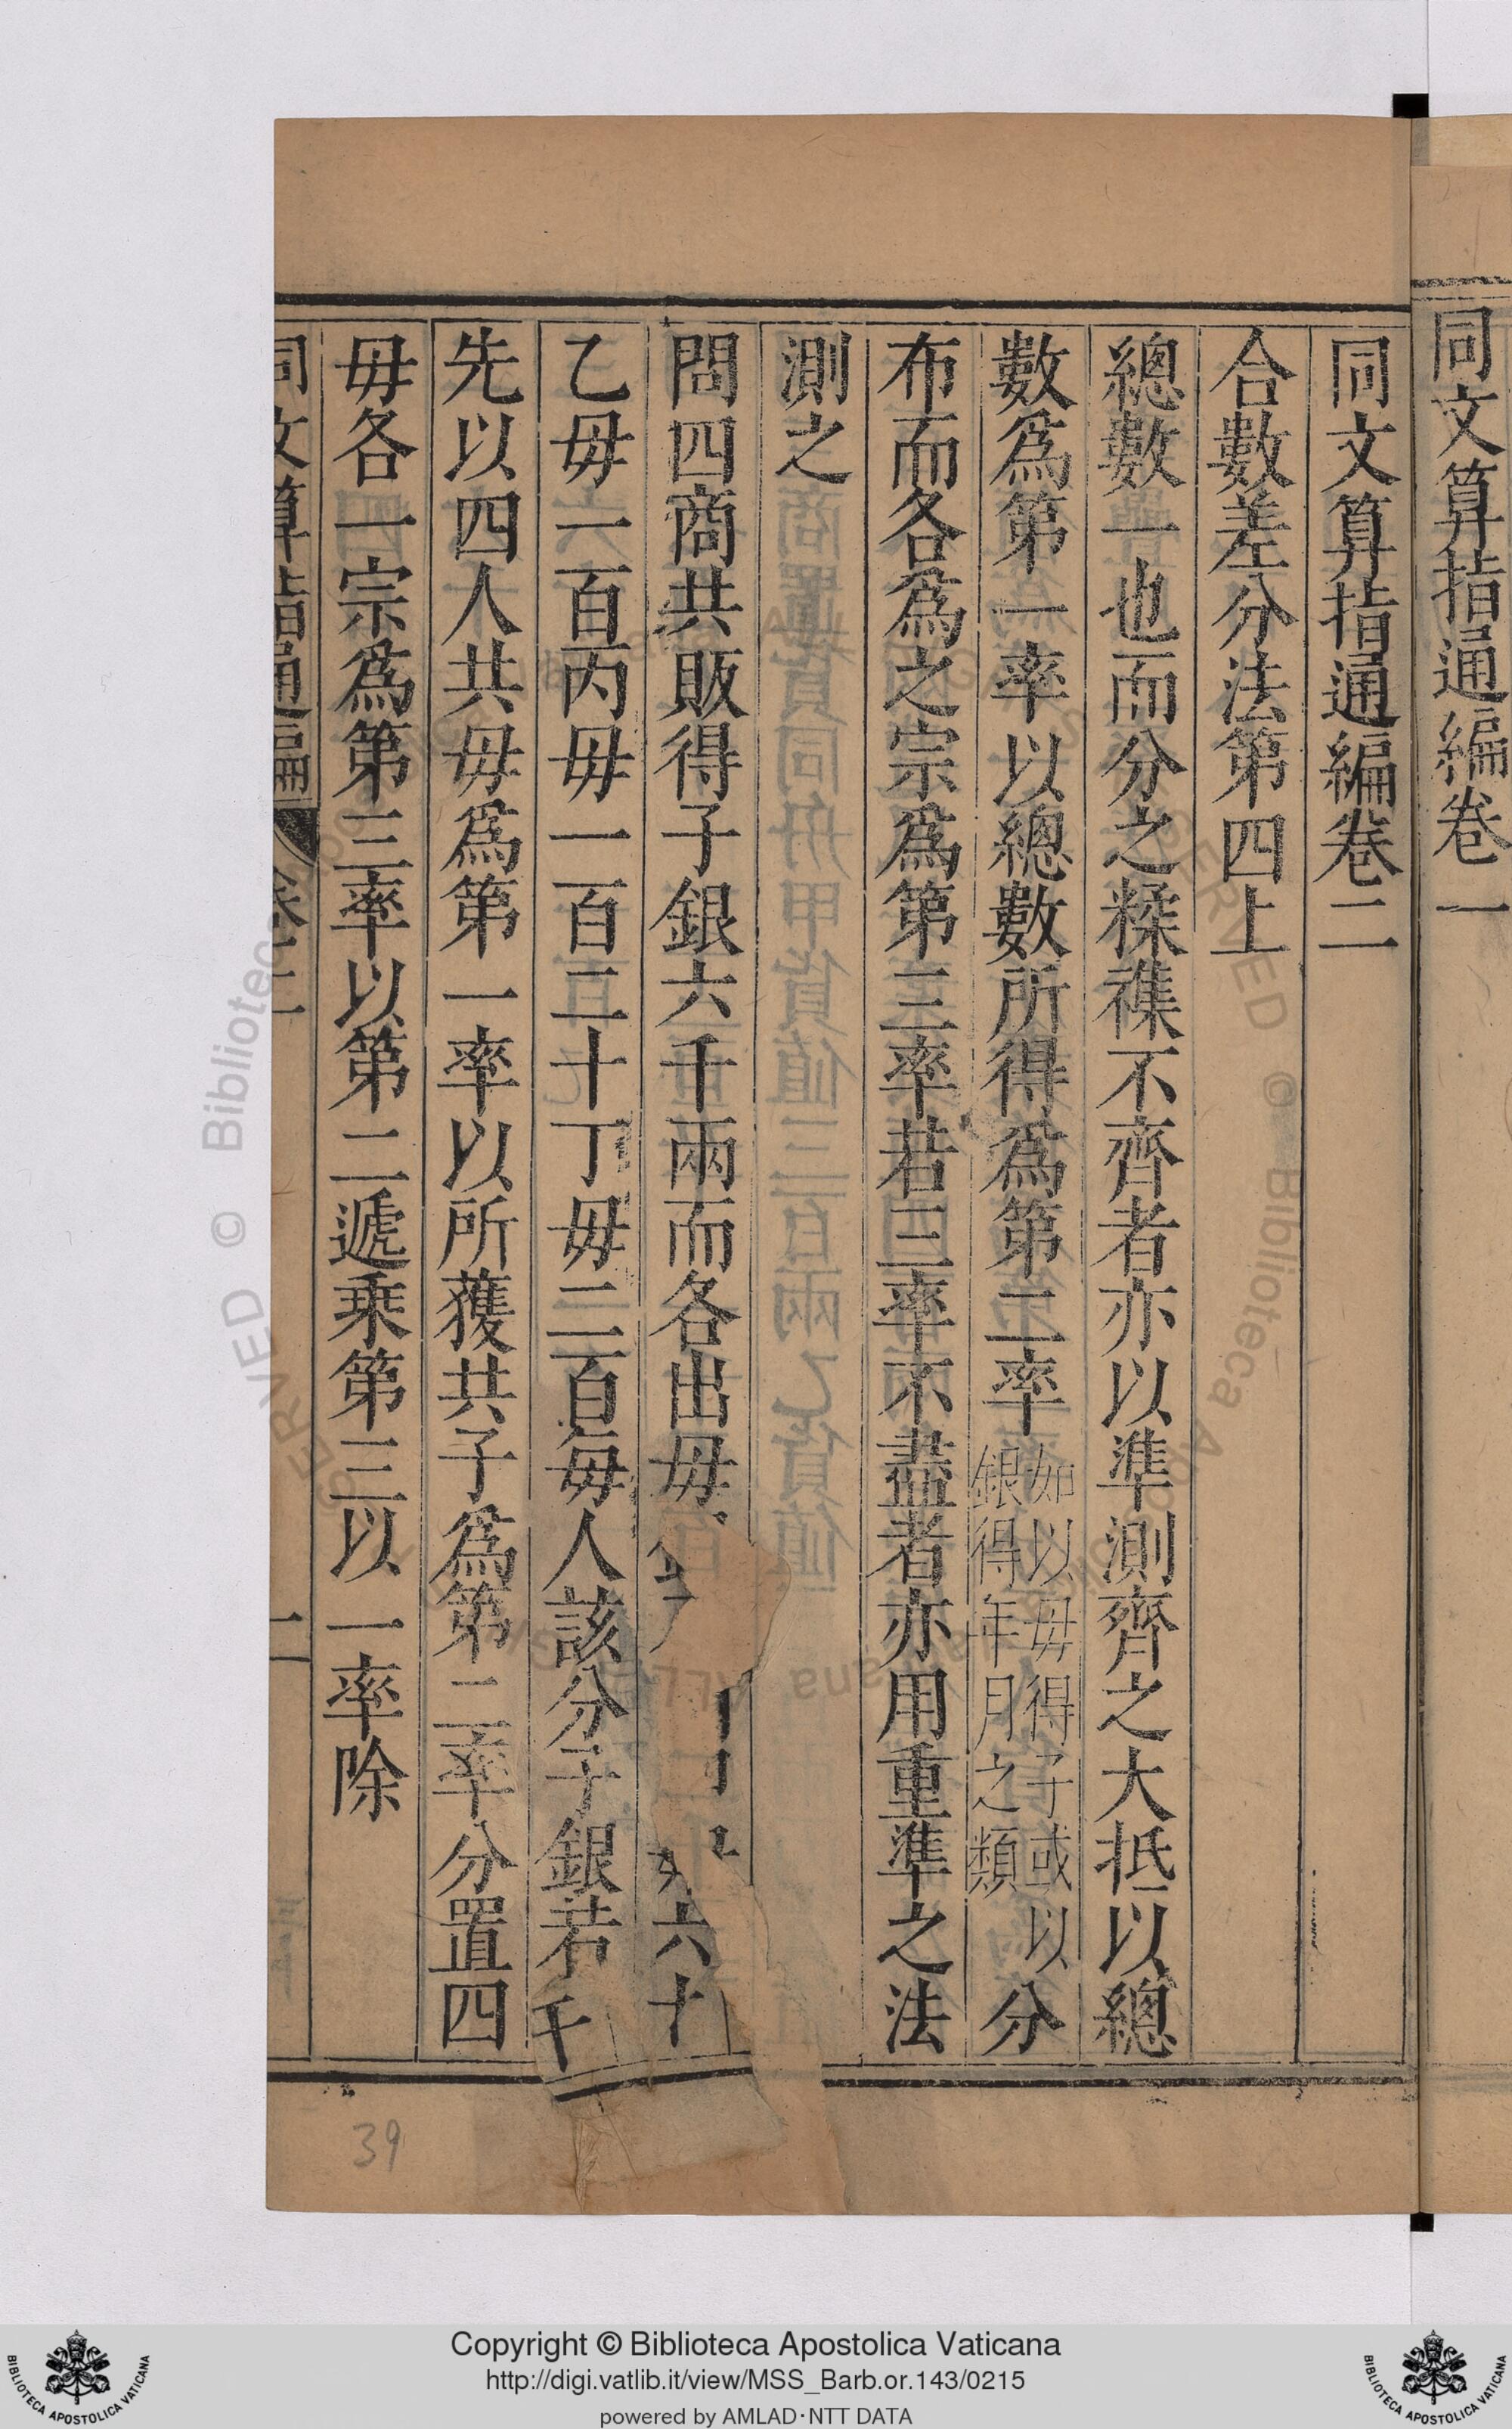 同文算指通編卷一
同文算指通編卷二
合數差分法第四上
總數一也而分之糅襍不齊者亦以準測齊之大抵以總
數爲第一率以總數所得爲第二率如以毋得子或以銀得年月之類分
布而各爲之宗爲第三率若三率不盡者亦用重準之法
測之
問四商共販得子銀六千兩而各出毋 六十
乙毋一百丙毋一百二十丁毋二百每人該分子銀若干
先以四人共毋爲第一率以所獲共子爲第二率分置四
毋各一宗爲第三率以第二遞乗第三以一率除
同文算指通編 卷二 一
39
© Biblioteca Apostolica Vaticana
Copyright © Biblioteca Apostolica Vaticana
http://digi.vatlib.it/view/MSS_Barb.or.143/0215
powered by AMLAD·NTT DATA
BIBLIOTECA APOSTOLICA VATICANA
BIBLIOTECA APOSTOLICA VATICANA